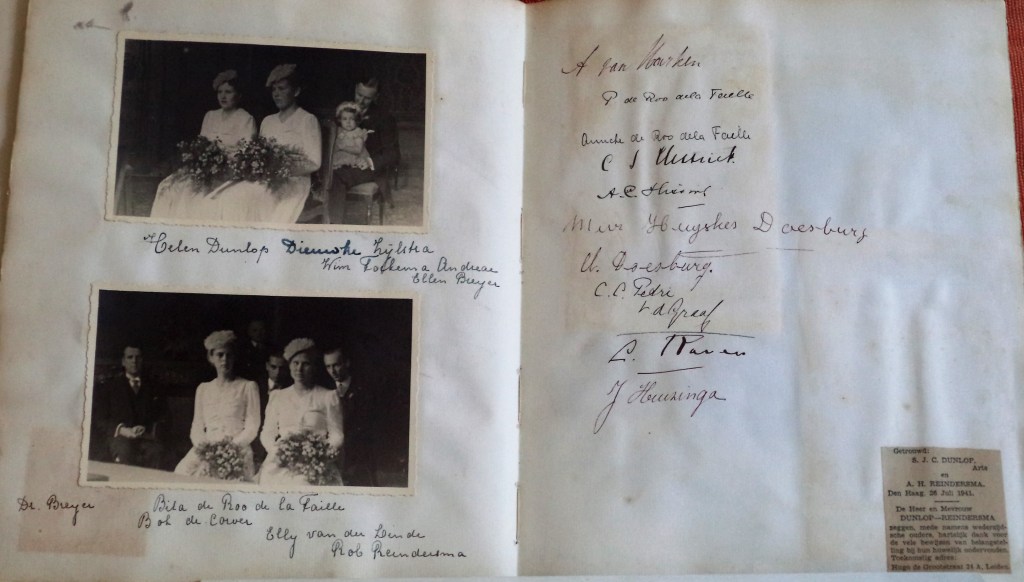 Helen Dunlop Dieuwke Zijlstra
Wim Fockema Andreae
Ellen Breyer
Dr. Breyer
Bita de Roo de la Faille
Bob de
Elly van der Linde
Rob Reindersma
A van
P de Roo de la Faille
Anneke de Roo de la Faille
C J
A.C.
Mevr Huyskes Doesburg
U. Doesburg.
C. C. Pedri
v d Graaf
J Huizinga
Getrouwd:
S. J. C. DUNLOP,
Arts
en
A. H. REINDERSMA.
Den Haag, 26 Juli 1941.
De Heer en Mevrouw
DUNLOP—REINDERSMA
zeggen, mede namens wederzijd-
sche ouders, hartelijk dank voor
de vele bewijzen van belangstel-
ling bij hun huwelijk ondervonden.
Toekomstig adres:
Hugo de Grootstraat 24 A, Leiden.